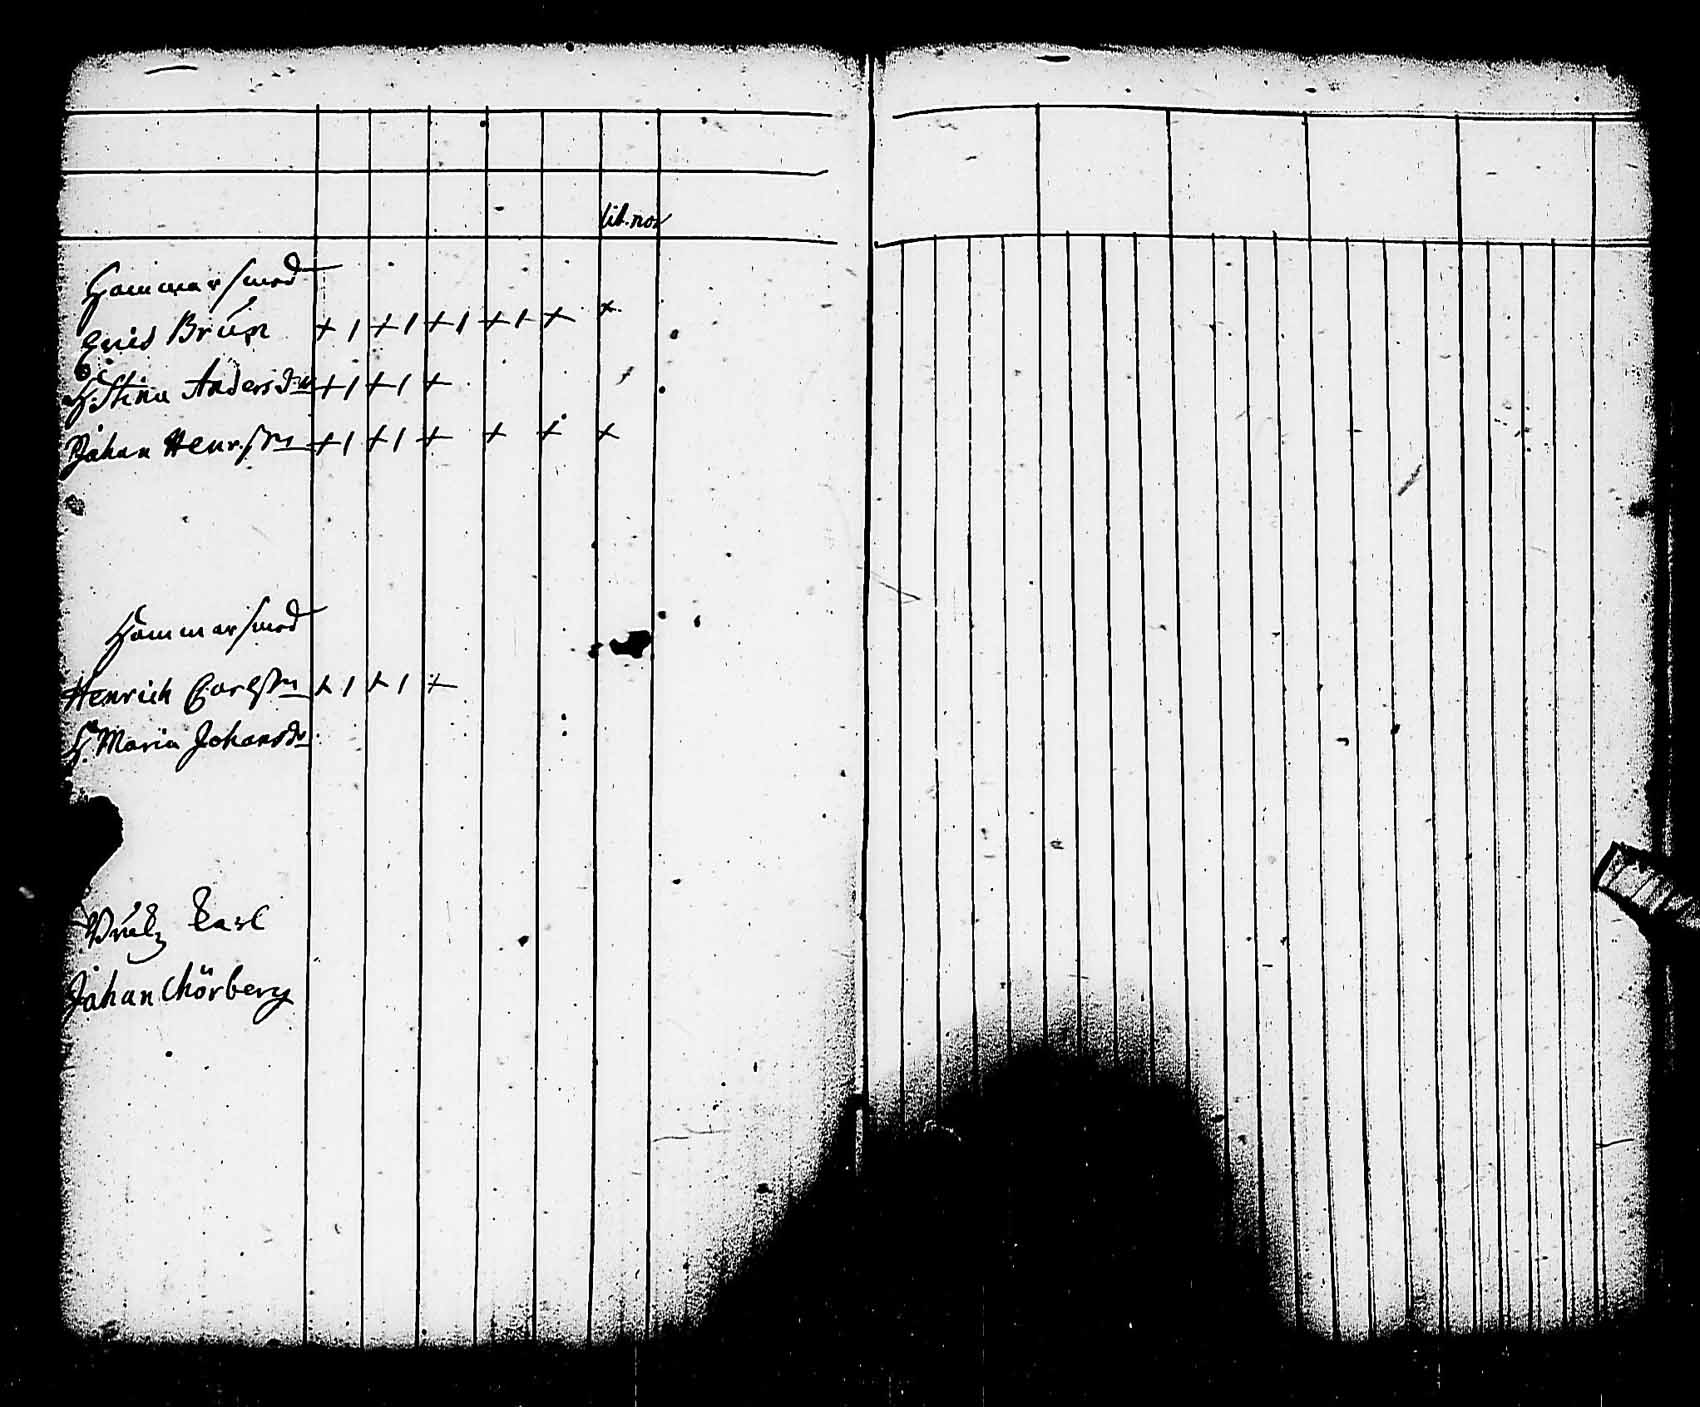 lib. nov
Hammarsmed
Brun
H. Stina Andersd:r
Johan Henr.ssn
Hammarsmed
Henrich Carlssn
H. Maria Johansdr
Karl
Johan Chörberg